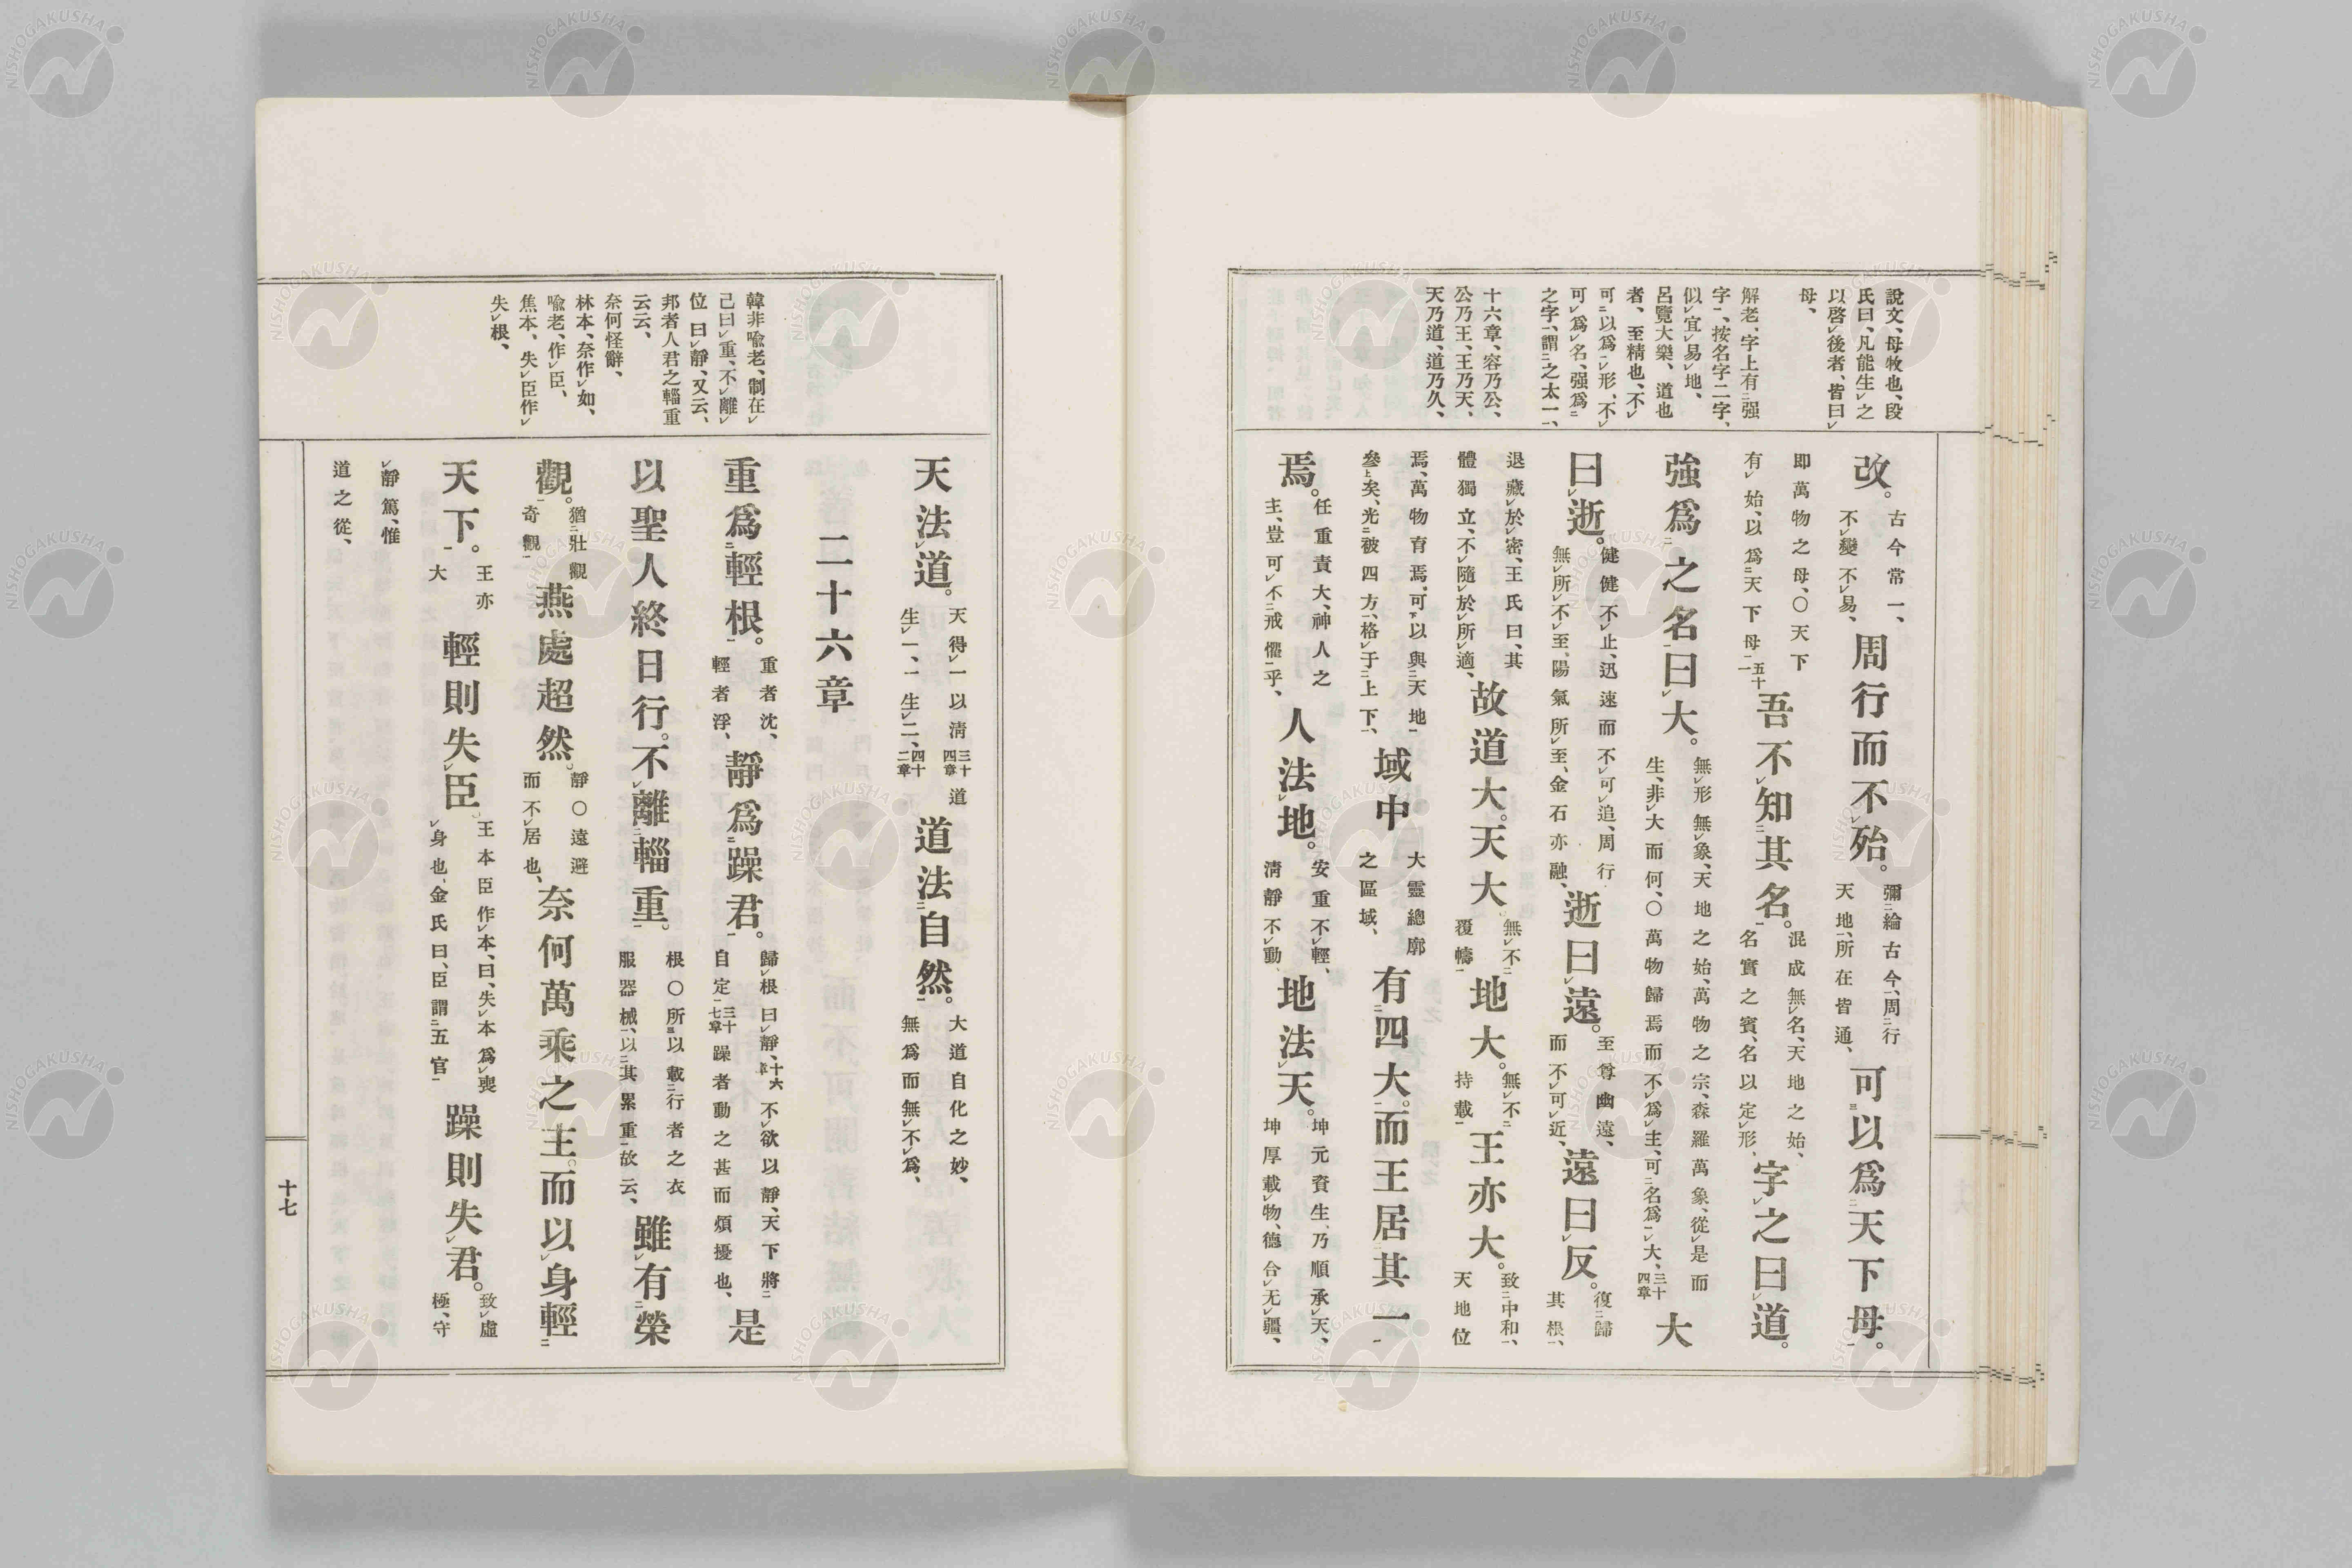 說文、母牧也、段
氏曰、凡能生之
以啓後者、皆曰
母、
解老、字上有强
字、按名字二字、
似宜易地、
呂覽大樂、道也
者、至精也、不
可以爲形、不
可爲名、强爲
之字、謂之太一、
十六章、容乃公、
公乃王、王乃天、
天乃道、道乃久、
改。古今常一、不變不易、周行而不殆。彌綸古今、周行天地、所在皆通、可以爲天下母。
卽萬物之母、〇天下有始、以爲天下母五十二吾不知其名。混成無名、天地之始、名實之賓、名以定形、字之曰道。
強爲之名曰大。無形無象、天地之始、萬物之宗、森羅萬象、從是而生、非大而何、〇萬物歸焉而不爲主、可名爲大、三十四章大
曰逝。健健不止、迅速而不可追、周行無所不至、陽氣所至、金石亦融、逝曰遠。至尊幽遠、而不可近、遠曰反。復歸其根、
退藏於密、王氏曰、其體獨立、不隨於所適、故道大。天大無不覆幬地大。無不持載王亦大。致中和、天地位
焉、萬物育焉、可以與天地參矣、光被四方、格于上下、域中大靈總廓之區域、有四大。而王居其一
焉。任重責大、神人之主、豈可不戒懼乎、人法地。安重不輕、淸靜不動、地法天。坤元資生、乃順承天、坤厚載物、德合无疆、
韓非喩老、制在
己曰重、不離
位曰靜、又云、
邦者人君之輜重
云云、
奈何怪辭、
林本、奈作如、
喩老、作臣、
焦本、失臣作
失根、
天法道。天得一以淸三十四章道生一、一生二、四十二章道法自然。大道自化之妙、無爲而無不爲、
二十六章
重爲輕根。重者沈、輕者浮、靜爲躁君。歸根曰靜、十六章不欲以靜、天下將自定三十七章躁者動之甚而煩擾也、是
以聖人終日行。不離輜重。根〇所以載行者之衣服器械、以其累重故云、雖有榮
觀。猶壯觀奇觀燕處超然。靜〇遠避而不居也、奈何萬乘之主。而以身輕
天下。王亦大輕則失臣王本臣作本、曰、失本爲喪身也、金氏曰、臣謂五官躁則失君。致虛極、守
靜篤、惟
道之從、
十七